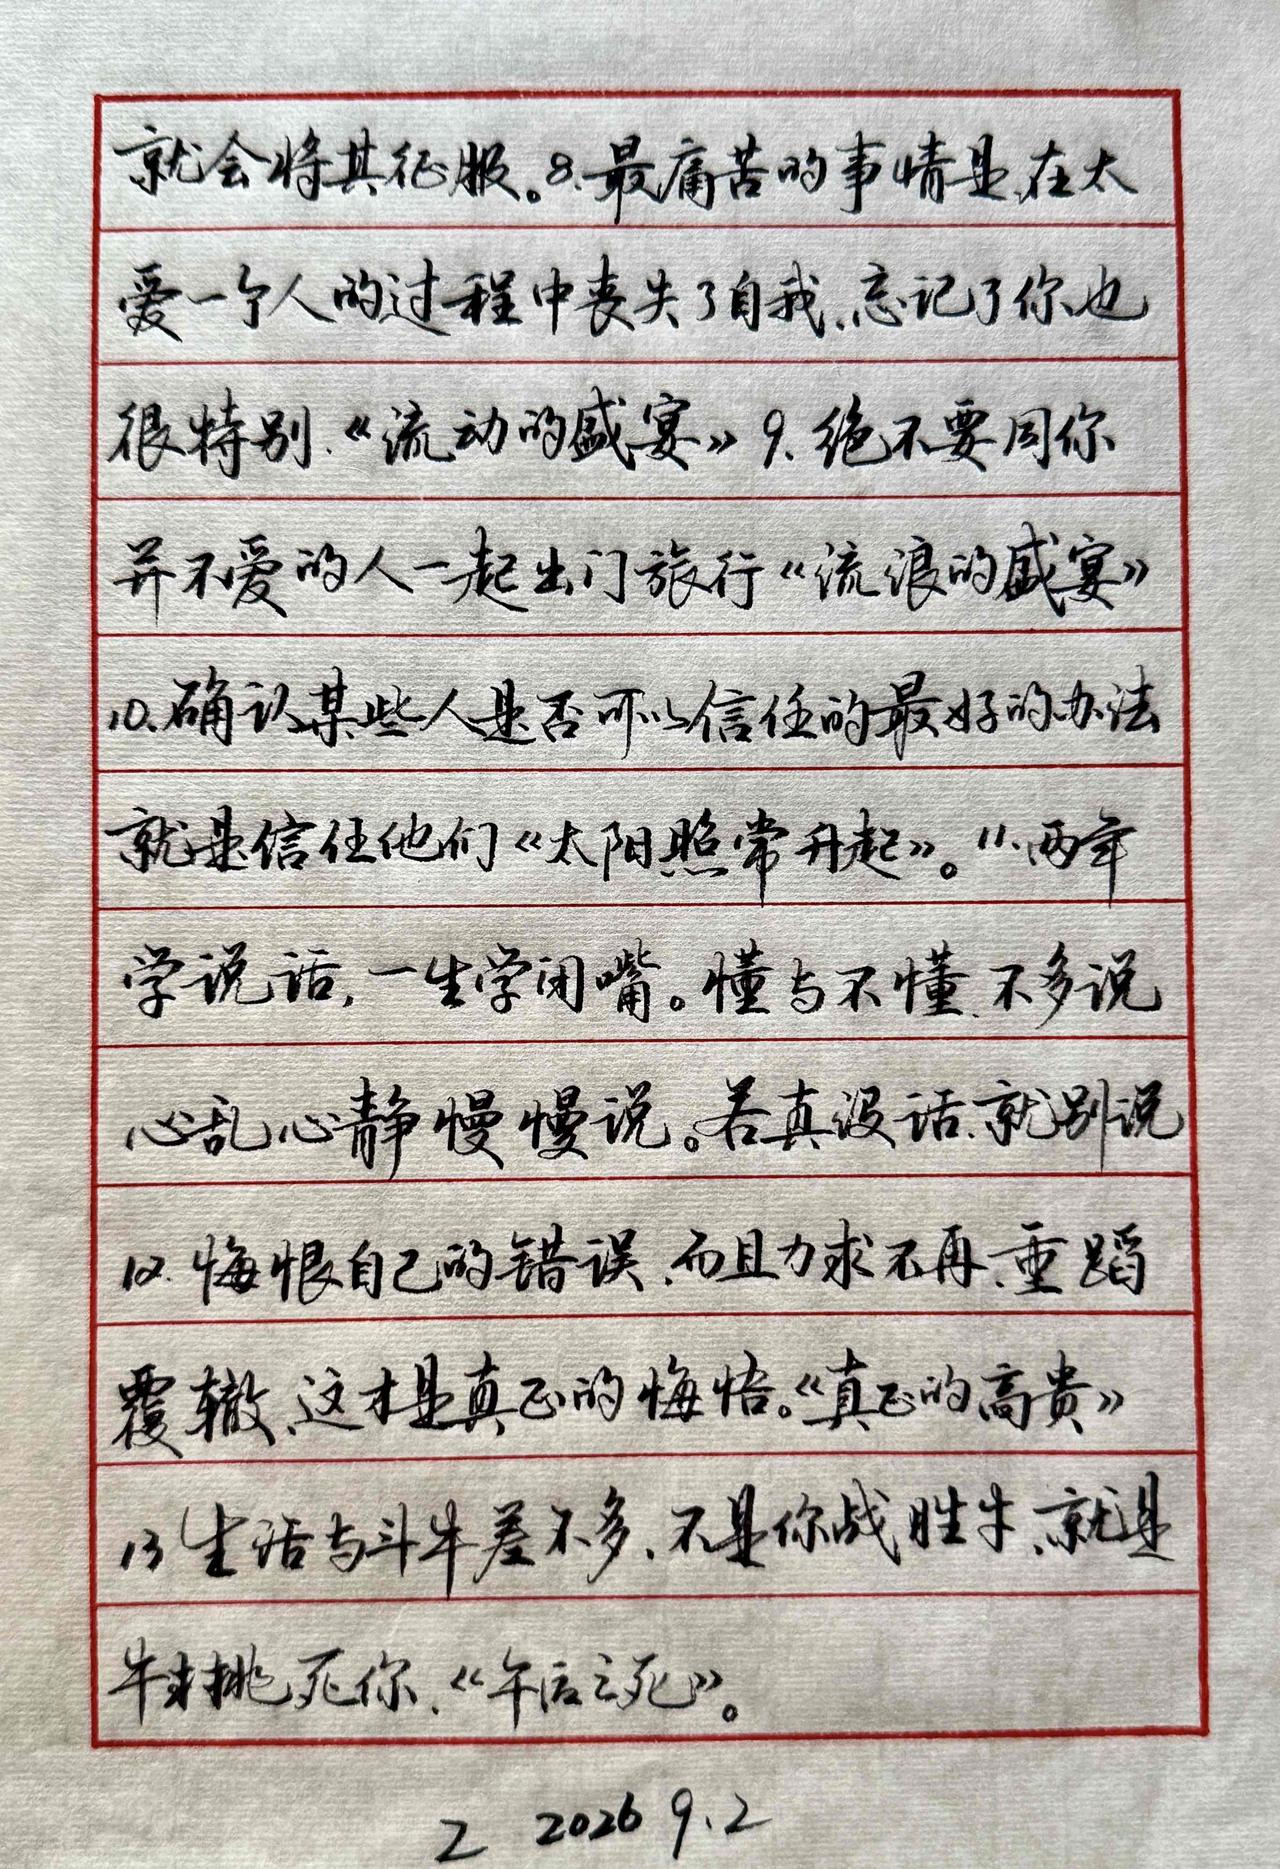 就会将其征服。8.最痛苦的事情是、在太
爱一个人的过程中丧失了自我、忘记了你也
很特别.《流动的盛宴》9.绝不要同你
并不爱的人一起出门旅行《流浪的盛宴》
10.确认某些人是否可以信任的最好的办法
就是信任他们《太阳照常升起》。11.两年
学说话,一生学闭嘴。懂与不懂、不多说
心乱心静慢慢说。若真没话、就别说
12.悔恨自己的错误、而且力求不再、重蹈
覆辙、这才是真正的悔悟。《真正的高贵》
13生活与斗牛差不多、不是你战胜牛、就是
牛来挑死你、《午后之死》。
2 2026 9.2